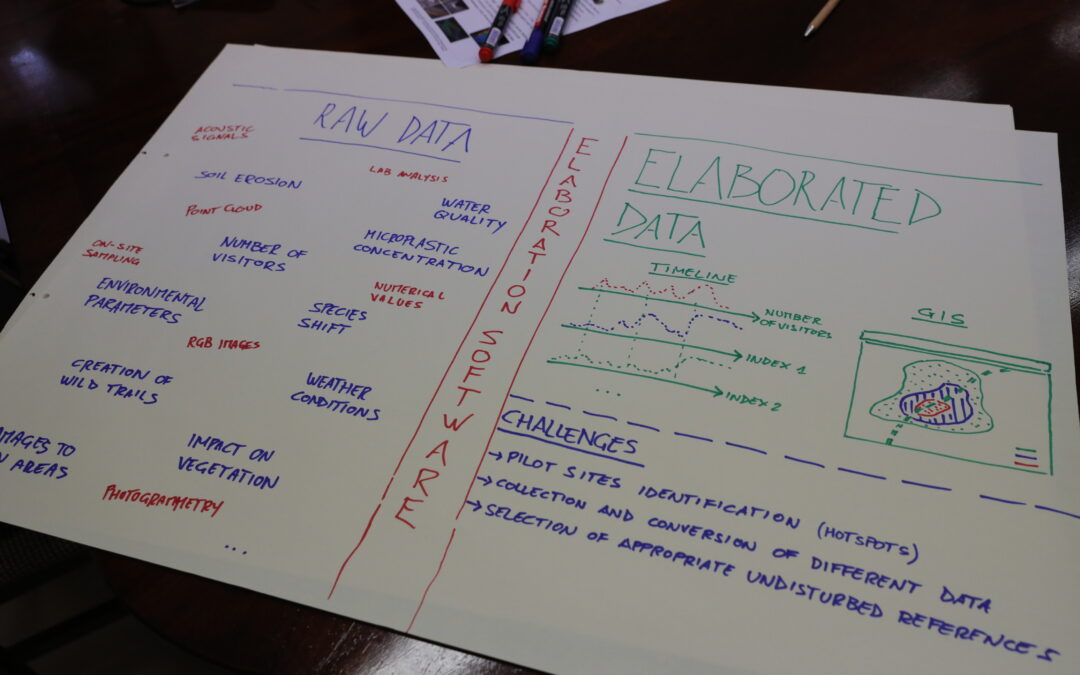 RAW DATA
ACOUSTIC
SIGNALS
LAB ANALYSIS
SOIL EROSION
WATER
QUALITY
POINT CLOUD
MICROPLASTIC
CONCENTRATION
ON-SITE
SAMPLING
NUMBER OF
VISITORS
NUMERICAL
VALUES
ENVIRONMENTAL
PARAMETERS
SPECIES
SHIFT
RGB IMAGES
CREATION OF
WILD TRAILS
WEATHER
CONDITIONS
AMAGES TO
AREAS
IMPACT ON
VEGETATION
PHOTOGRAMMETRY
...
ELABORATION SOFTWARE
ELABORATED
DATA
TIMELINE
NUMBER
OF VISITORS
INDEX 1
INDEX 2
...
GIS
CHALLENGES
→ PILOT SITES IDENTIFICATION (HOTSPOTS)
→ COLLECTION AND CONVERSION OF DIFFERENT DATA
→ SELECTION OF APPROPRIATE UNDISTURBED REFERENCES